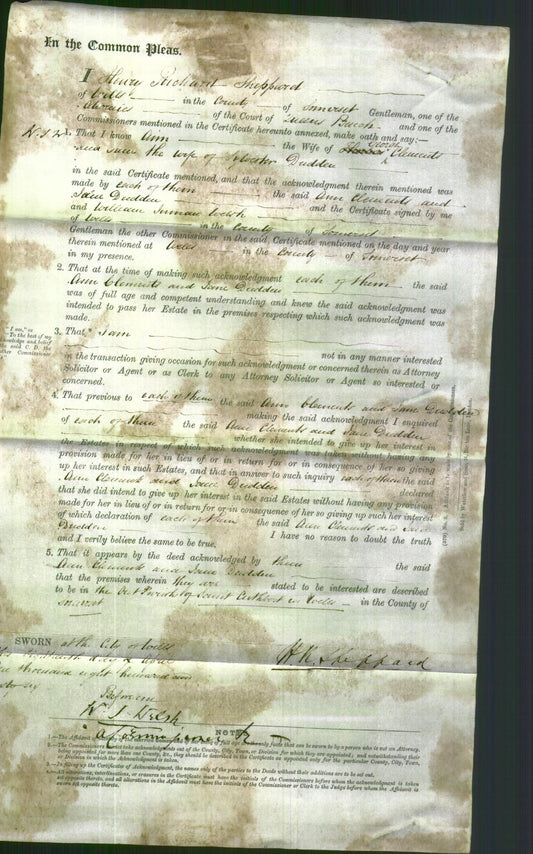 In the Common Pleas.
I Henry Richard Sheppard
of Wells in the County of Somerset Gentleman, one of the
of the Court of Queens Bench and one of the
Commissioners mentioned in the Certificate hereunto annexed, make oath and say:—
1. That I know Ann the Wife of Clements
and Jane the wife of Dudden
in the said Certificate mentioned, and that the acknowledgment therein mentioned was
made by each of them the said Ann Clements and
Jane Dudden and the Certificate signed by me
and William Welsh
of Wells in the County of Somerset
Gentleman the other Commissioner in the said Certificate mentioned on the day and year
therein mentioned at Wells in the County of Somerset
in my presence.
2. That at the time of making such acknowledgment each of them the said
Ann Clements and Jane Dudden
was of full age and competent understanding and knew the said acknowledgment was
intended to pass her Estate in the premises respecting which such acknowledgment was
made.
"I am," or
"To the best of my
knowledge and belief
said C. D. the
other Commissioner
3. That I am
not in any manner interested
in the transaction giving occasion for such acknowledgment or concerned therein as Attorney
Solicitor or Agent or as Clerk to any Attorney Solicitor or Agent so interested or
concerned.
4. That previous to each of them the said Ann Clements and Jane Dudden
making the said acknowledgment I enquired
of each of them the said Ann Clements and Jane Dudden
whether she intended to give up her interest in
the Estates in respect of which such acknowledgment was taken without having any
provision made for her in lieu of or in return for or in consequence of her so giving
up her interest in such Estates, and that in answer to such inquiry each of them the said
Ann Clements and Jane Dudden declared
that she did intend to give up her interest in the said Estates without having any provision
made for her in lieu of or in return for or in consequence of her so giving up such her interest
of which declaration of each of them the said Ann Clements and Jane
Dudden I have no reason to doubt the truth
and I verily believe the same to be true.
5. That it appears by the deed acknowledged by them the said
Ann Clements and Jane Dudden
that the premises wherein they are stated to be interested are described
to be in the Out Parish of Saint Cuthbert in Wells in the County of
Somerset
SWORN at the City of Wells
day of
one thousand eight hundred and
H. R. Sheppard
Before me
W. I. Welsh
A Commissioner &c
NOTE
2.—The Commissioners
being appointed for more than one County, &c., they should be described in the Certificate as appointed only for the particular County, City, Town,
or Division in which the Acknowledgment is taken.
3.—In filling up the Certificates of Acknowledgment, the names only of the parties to the Deeds without their additions are to be set out.
4.—All alterations, interlineations, or erasures in the Certificate must have the initials of the Commissioners before whom the acknowledgment is taken
set opposite thereto, and all alterations in the Affidavit must have the initials of the Commissioner or Clerk to the Judge before whom the Affidavit is
sworn set opposite thereto.